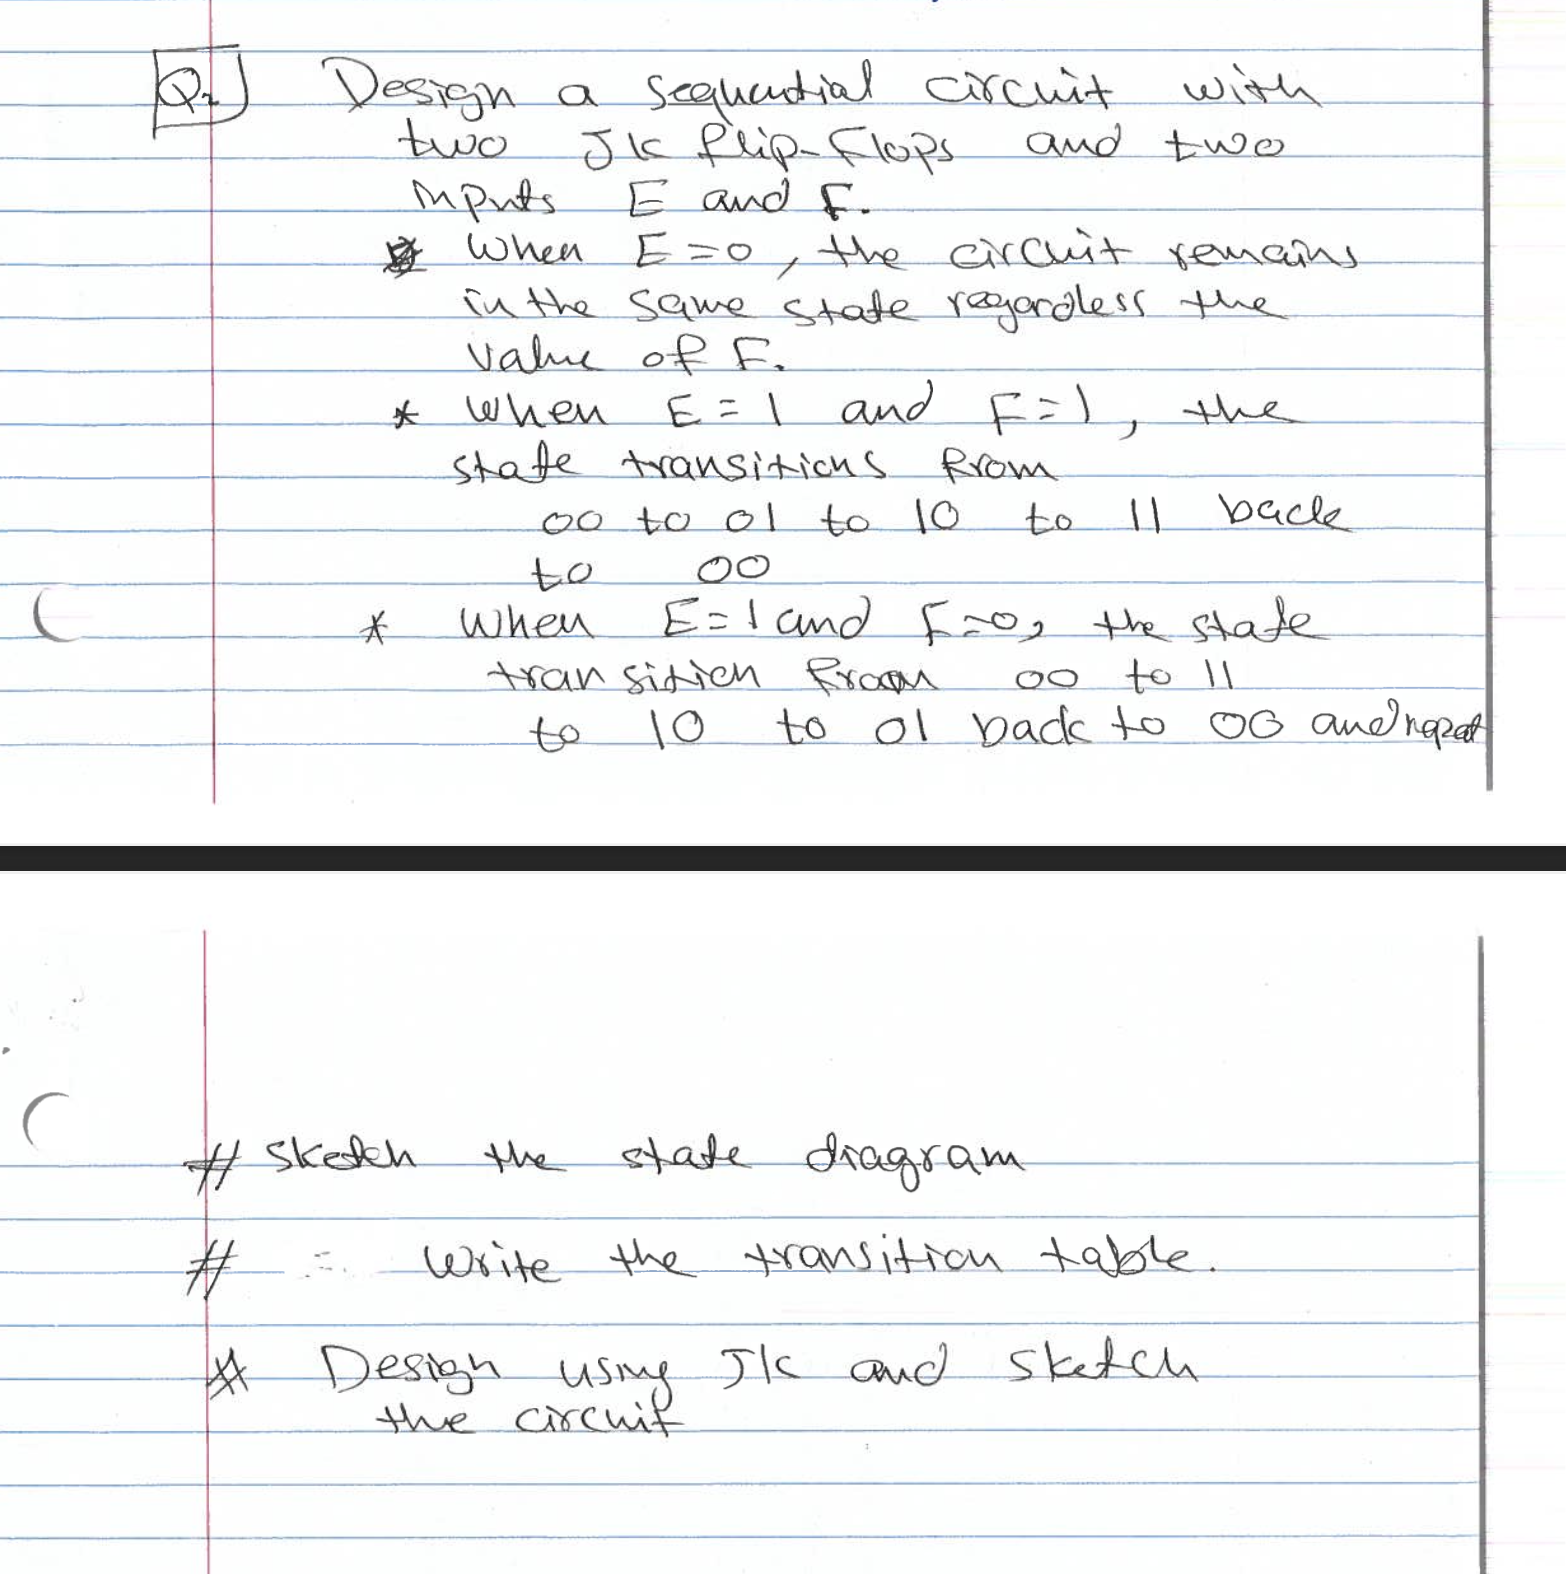 Q2 Design a sequential circuit with
two JK flip-Flops and two
inputs E and F.
* When E=0, the circuit remains
in the same state regardless the
value of F.
* When E=1 and F=1, the
state transitions from
00 to 01 to 10 to 11 back
to 00
* When E=1 and F=0, the state
transition from 00 to 11
to 10 to 01 back to 00 and repeat
# sketch the state diagram
# write the transition table.
# Design using JK and sketch
the circuit